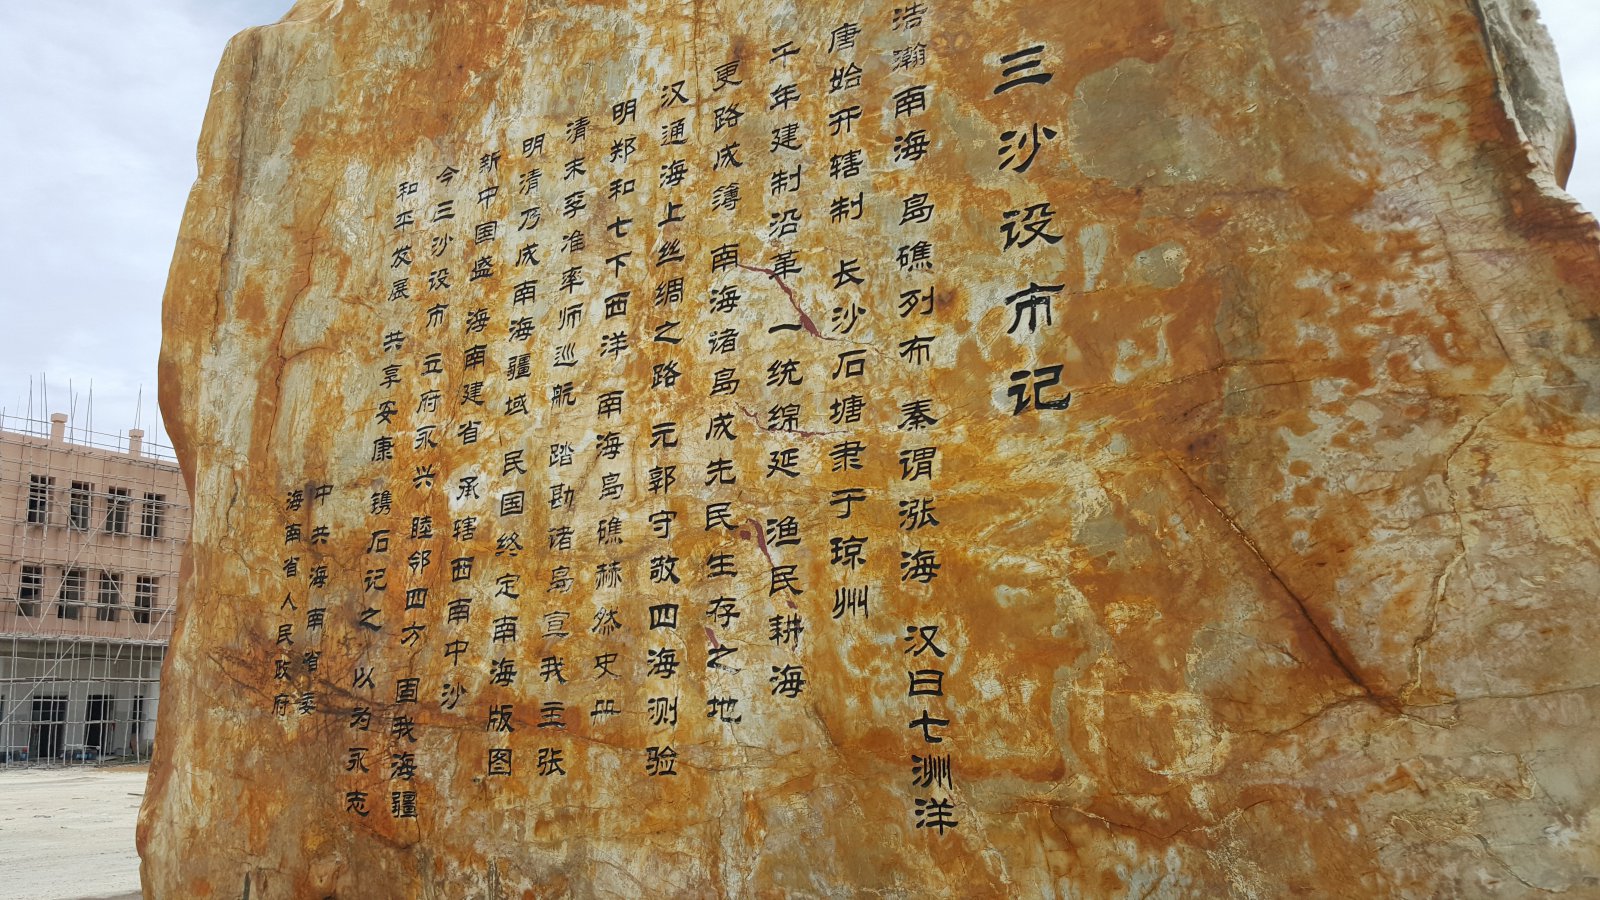 三沙设市记
浩瀚南海 岛礁列布 秦谓涨海 汉曰七洲洋
唐始开辖制 长沙石塘隶于琼州
千年建制沿革 一统绵延 渔民耕海
更路成簿 南海诸岛成先民生存之地
汉通海上丝绸之路 元郭守敬四海测验
明郑和七下西洋 南海岛礁赫然史册
清末李准率师巡航 踏勘诸岛宣我主张
明清乃成南海疆域 民国终定南海版图
新中国盛 海南建省 承辖西南中沙
今三沙设市 立府永兴 睦邻四方 固我海疆
和平发展 共享安康 镌石记之 以为永志
中共海南省委
海南省人民政府